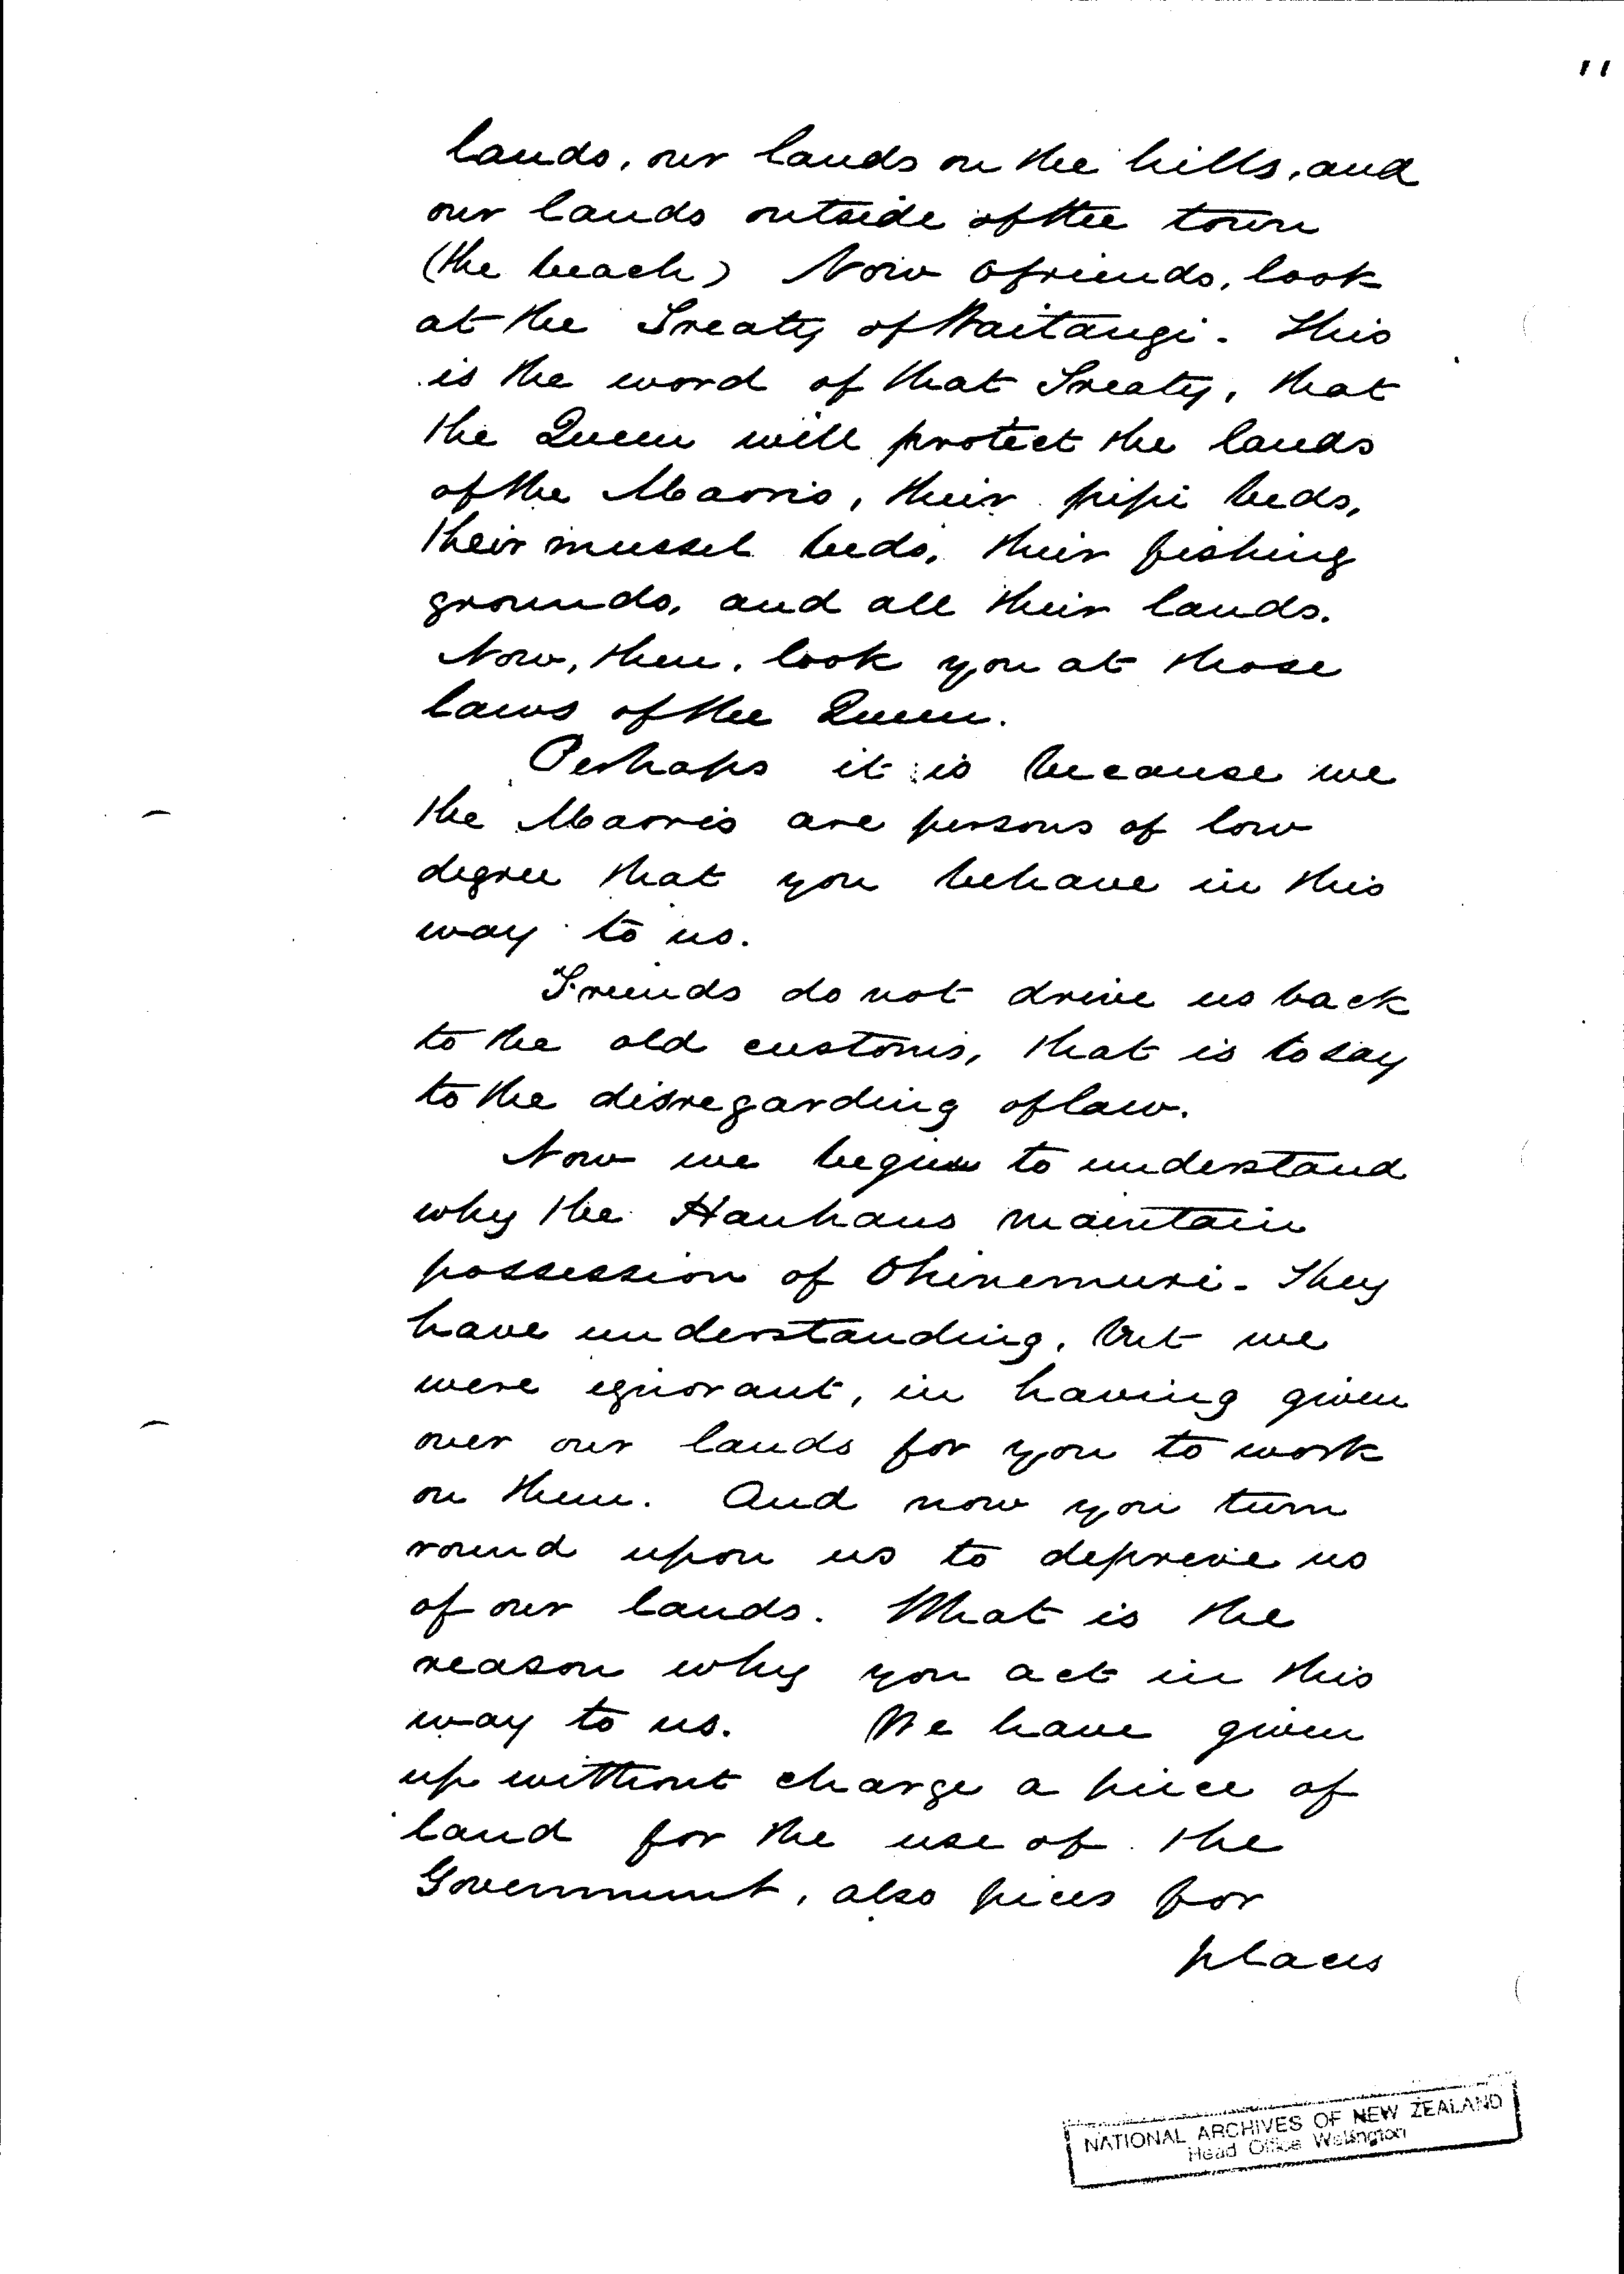 11
lands, our lands on the hills, and
our lands outside of the town
(the beach) Now O friends, look
at the Treaty of Waitangi. This
is the word of that Treaty, that
the Queen will protect the lands
of the Maoris, their pipi beds,
their mussel beds, their fishing
grounds, and all their lands.
Now, then, look you at those
laws of the Queen.
Perhaps it is because we
the Maoris are persons of low
degree that you behave in this
way to us.
Friends do not drive us back
to the old customs, that is to say
to the disregarding of law.
Now we begin to understand
why the Hauhaus maintain
possession of Ohinemuri. They
have understanding, but we
were ignorant, in having given
over our lands for you to work
on them. And now you turn
round upon us to deprive us
of our lands. What is the
reason why you act in this
way to us. We have given
up without charge a piece of
land for the use of the
Government, also pieces for
places
NATIONAL ARCHIVES OF NEW ZEALAND
Head Office Wellington